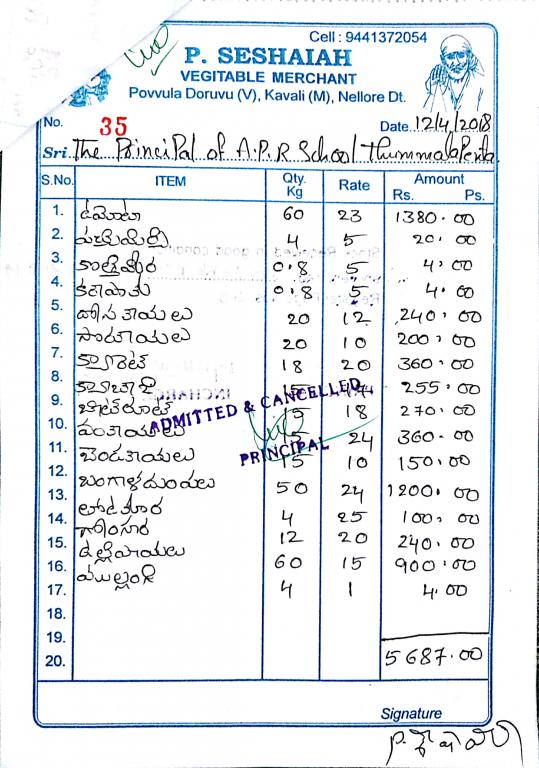 Cell : 9441372054
P. SESHAIAH
VEGITABLE MERCHANT
Povvula Doruvu (V), Kavali (M), Nellore Dt.
No. 35 Date. 12/4/2018
Sri. The Principal of A.P.R School Thummalapenta
S.No. ITEM Qty. Kg Rate Amount Rs. Ps.
1. టమోటా 60 23 1380.00
2. పచ్చిమిర్చి 4 5 20.00
3. కొత్తిమీర 0.8 5 4.00
4. కరేపాకు 0.8 5 4.00
5. దోసకాయలు 20 12 240.00
6. సొరకాయలు 20 10 200.00
7. క్యారెట్ 18 20 360.00
8. క్యాబేజి 15 255.00
9. బీట్‌రూట్ 15 18 270.00
10. వంకాయలు 15 24 360.00
11. బెండకాయలు 15 10 150.00
12. బంగాళదుంపలు 50 24 1200.00
13. తోటకూర 4 25 100.00
14. గోంగూర 12 20 240.00
15. ఉల్లిపాయలు 60 15 900.00
16. ముల్లంగి 4 1 4.00
17.
18.
19.
20. 5687.00
ADMITTED & CANCELLED
PRINCIPAL
Signature
P. శేషయ్య